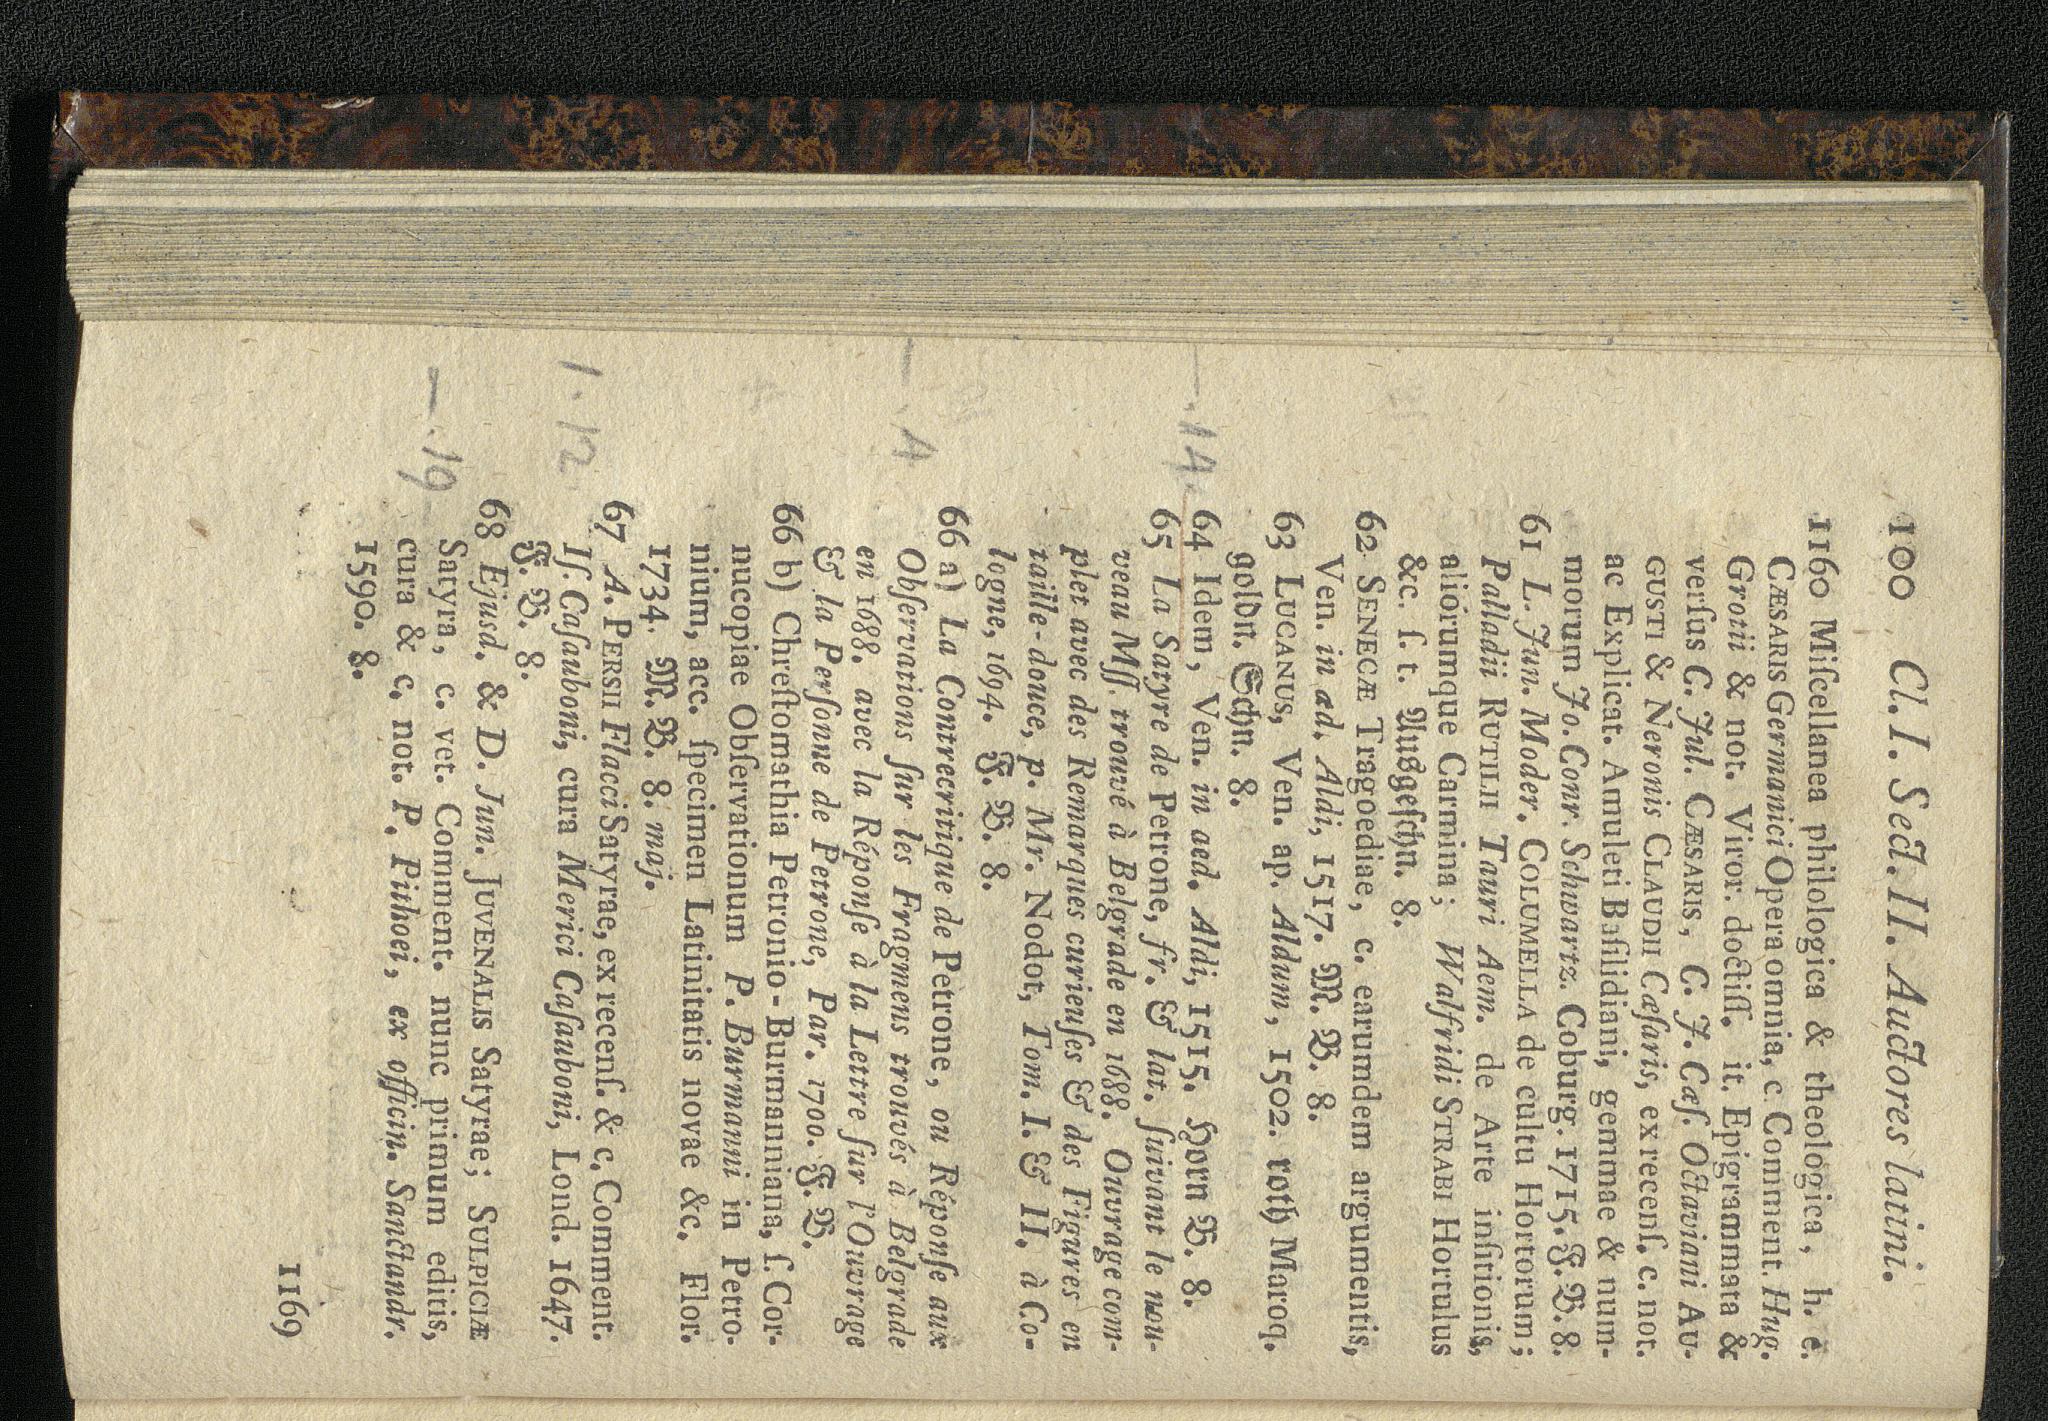 100 Cl. I. Sect. II. Auctores latini.
1160 Miſcellanea philologica & theologica, h. e.
CÆSARIS Germanici Opera omnia, c. Comment. Hug.
Grotii & not. Viror. doctiſſ. it. Epigrammata &
verſus C. Jul. CÆSARIS, C. J. Cæſ. Octaviani AU-
GUSTI & NERONIS CLAUDII Cæſaris, ex recenſ. c. not.
ac Explicat. Amuleti Baſilidiani, gemmae & num-
morum Jo. Conr. Schwartz. Coburg. 1715. F. B. 8.
61 L. Jun. Moder. COLUMELLA de cultu Hortorum;
Palladii RUTILII Tauri Aem. de Arte inſitionis,
aliorumque Carmina; Walfridi STRABI Hortulus
&c. ſ. t. Ausgeſchn. 8.
62 SENECÆ Tragoediae, c. earumdem argumentis,
Ven. in æd. Aldi, 1517. M. B. 8.
63 LUCANUS, Ven. ap. Aldum, 1502. roth Maroq.
goldn. Schn. 8.
—.14. 64 Idem, Ven. in aed. Aldi, 1515. Horn B. 8.
65 La Satyre de Petrone, fr. & lat. ſuivant le nou-
veau Mſſ. trouvé à Belgrade en 1688. Ouvrage com-
plet avec des Remarques curieuſes & des Figures en
taille-douce, p. Mr. Nodot, Tom. I. & II. à Co-
logne, 1694. F. B. 8.
— . 4 66 a) La Contrecritique de Petrone, ou Réponſe aux
Obſervations ſur les Fragmens trouvés à Belgrade
en 1688. avec la Réponſe à la Lettre ſur l'Ouvrage
& la Perſonne de Petrone, Par. 1700. F. B.
66 b) Chreſtomathia Petronio-Burmanniana, ſ. Cor-
nucopiae Obſervationum P. Burmanni in Petro-
nium, acc. ſpecimen Latinitatis novae &c. Flor.
1734. M. B. 8. maj.
67 A. PERSII Flacci Satyrae, ex recenſ. & c. Comment.
1.12. Iſ. Caſauboni, cura Merici Caſauboni, Lond. 1647.
F. B. 8.
68 Ejusd. & D. Jun. JUVENALIS Satyrae; SULPICIÆ
—.19 Satyra, c. vet. Comment. nunc primum editis,
cura & c. not. P. Pithoei, ex officin. Sanctandr.
1590. 8.
1169